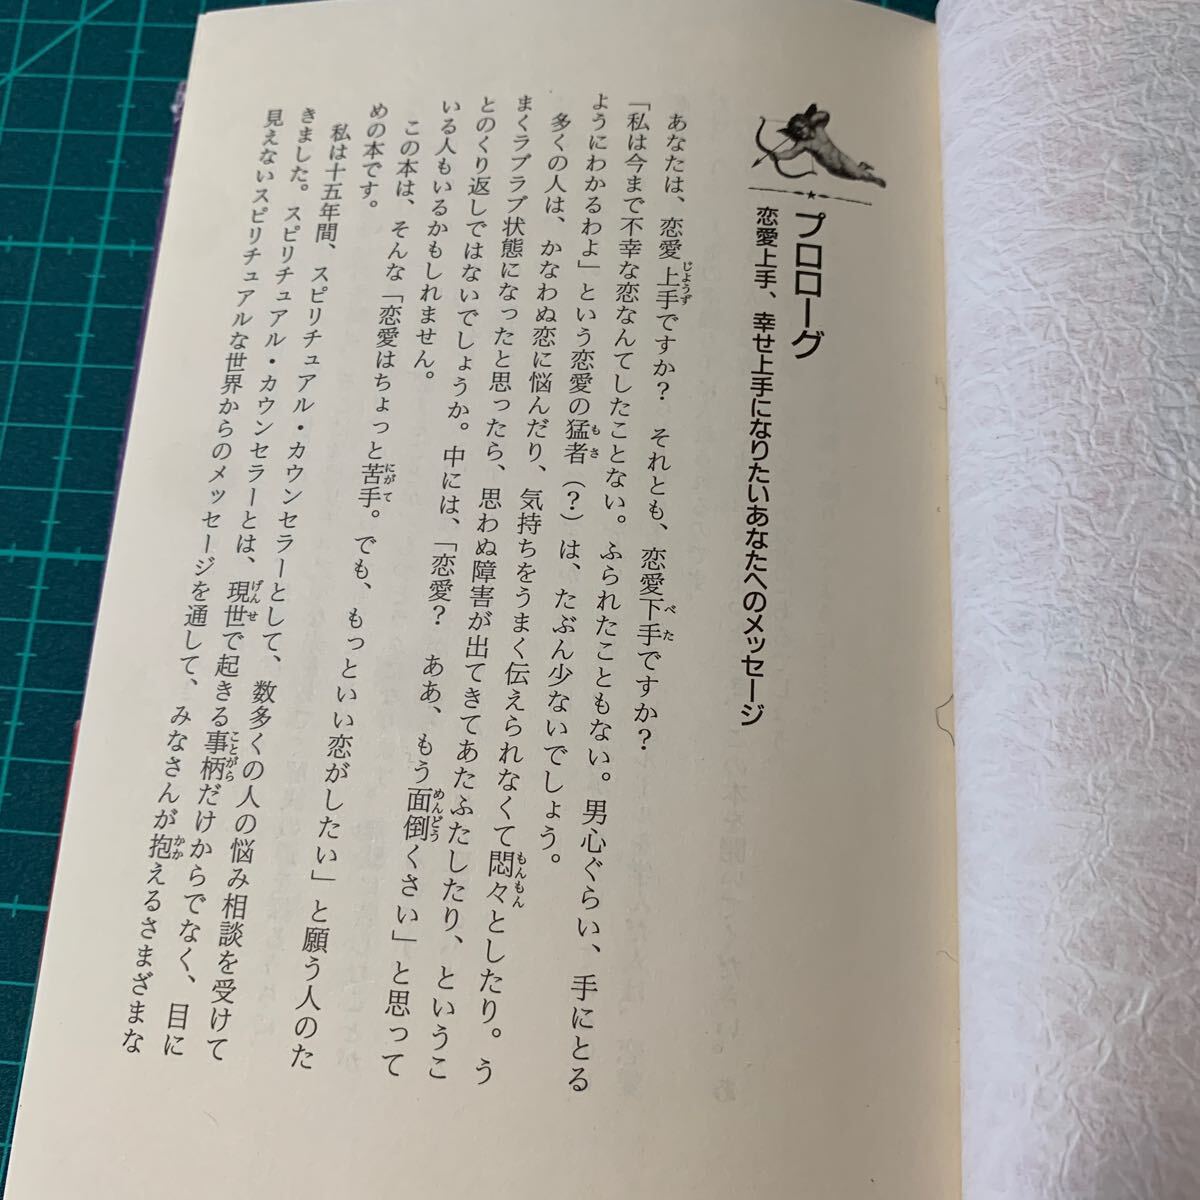 プロローグ
恋愛上手、幸せ上手になりたいあなたへのメッセージ
あなたは、恋愛上手ですか？　それとも、恋愛下手ですか？
「私は今まで不幸な恋なんてしたことない。ふられたこともない。男心ぐらい、手にとる
ようにわかるわよ」という恋愛の猛者（？）は、たぶん少ないでしょう。
多くの人は、かなわぬ恋に悩んだり、気持ちをうまく伝えられなくて悶々としたり。う
まくラブラブ状態になったと思ったら、思わぬ障害が出てきてあたふたしたり、というこ
とのくり返しではないでしょうか。中には、「恋愛？　ああ、もう面倒くさい」と思って
いる人もいるかもしれません。
この本は、そんな「恋愛はちょっと苦手。でも、もっといい恋がしたい」と願う人のた
めの本です。
私は十五年間、スピリチュアル・カウンセラーとして、数多くの人の悩み相談を受けて
きました。スピリチュアル・カウンセラーとは、現世で起きる事柄だけからでなく、目に
見えないスピリチュアルな世界からのメッセージを通して、みなさんが抱えるさまざまな